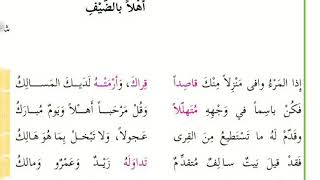 أَهْلاً بالضَّيْفِ
إذا المَرْءُ وافى مَنْزِلاً مِنْكَ قاصِداً قِراكَ، وَأَرْمَتْهُ لَدَيكَ المَسالِكُ
فَكُنْ باسِماً في وَجْهِهِ مُتهَلِّلاً وَقُلْ مَرْحَباً أَهْلاً وَيَومٌ مُبارَكُ
وقدِّمْ لَهُ ما تَسْتَطيعُ مِنَ القِرى عَجولاً، وَلا تَبْخَلْ بِما هُوَ هَالِكُ
فَقَدْ قيلَ بَيتٌ سالِفٌ مُتقدِّمٌ تَداوَلَهُ زَيْدٌ وَعَمْرٌو وَمالكُ